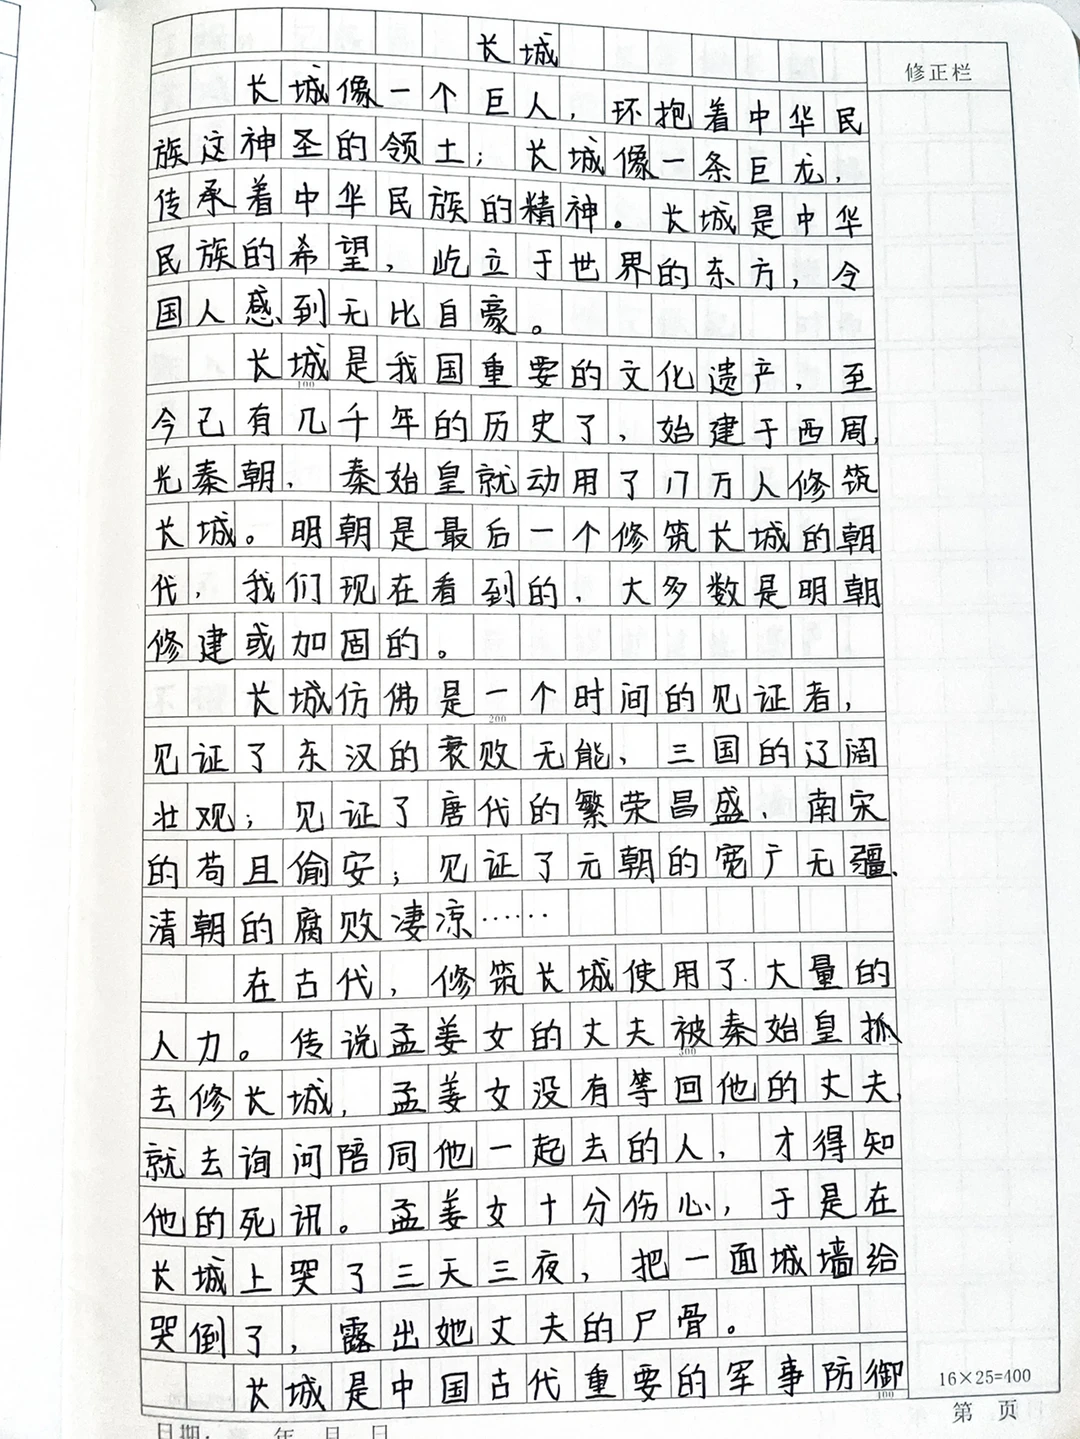 长城
修正栏
长城像一个巨人，环抱着中华民
族这神圣的领土；长城像一条巨龙，
传承着中华民族的精神。长城是中华
民族的希望，屹立于世界的东方，令
国人感到无比自豪。
长城是我国重要的文化遗产，至
100
今已有几千年的历史了，始建于西周，
光秦朝，秦始皇就动用了17万人修筑
长城。明朝是最后一个修筑长城的朝
代，我们现在看到的，大多数是明朝
修建或加固的。
长城仿佛是一个时间的见证者，
200
见证了东汉的衰败无能、三国的辽阔
壮观；见证了唐代的繁荣昌盛、南宋
的苟且偷安；见证了元朝的宽广无疆、
清朝的腐败凄凉……
在古代，修筑长城使用了大量的
人力。传说孟姜女的丈夫被秦始皇抓
300
去修长城，孟姜女没有等回他的丈夫，
就去询问陪同他一起去的人，才得知
他的死讯。孟姜女十分伤心，于是在
长城上哭了三天三夜，把一面城墙给
哭倒了，露出她丈夫的尸骨。
长城是中国古代重要的军事防御
400
16×25=400
第 页
日期: 年 月 日